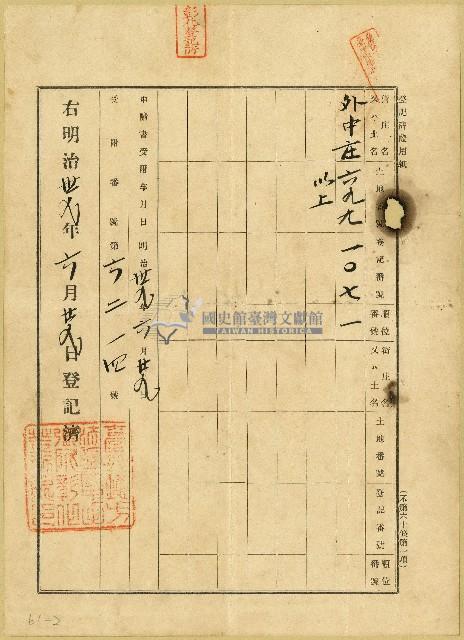 彰化登記濟
登記濟證用紙
街庄名
又ハ土名
土地番號
登記番號
順位
番號
街庄名
又ハ土名
土地番號
登記番號
順位
番號
外中庄 六九九 一〇七一
以上
申請書受附年月日 明治卅九年六月廿九日
受附番號第六二一四號
右明治卅九年六月廿九日登記濟
國史館臺灣文獻館
TAIWAN HISTORICA
61-2